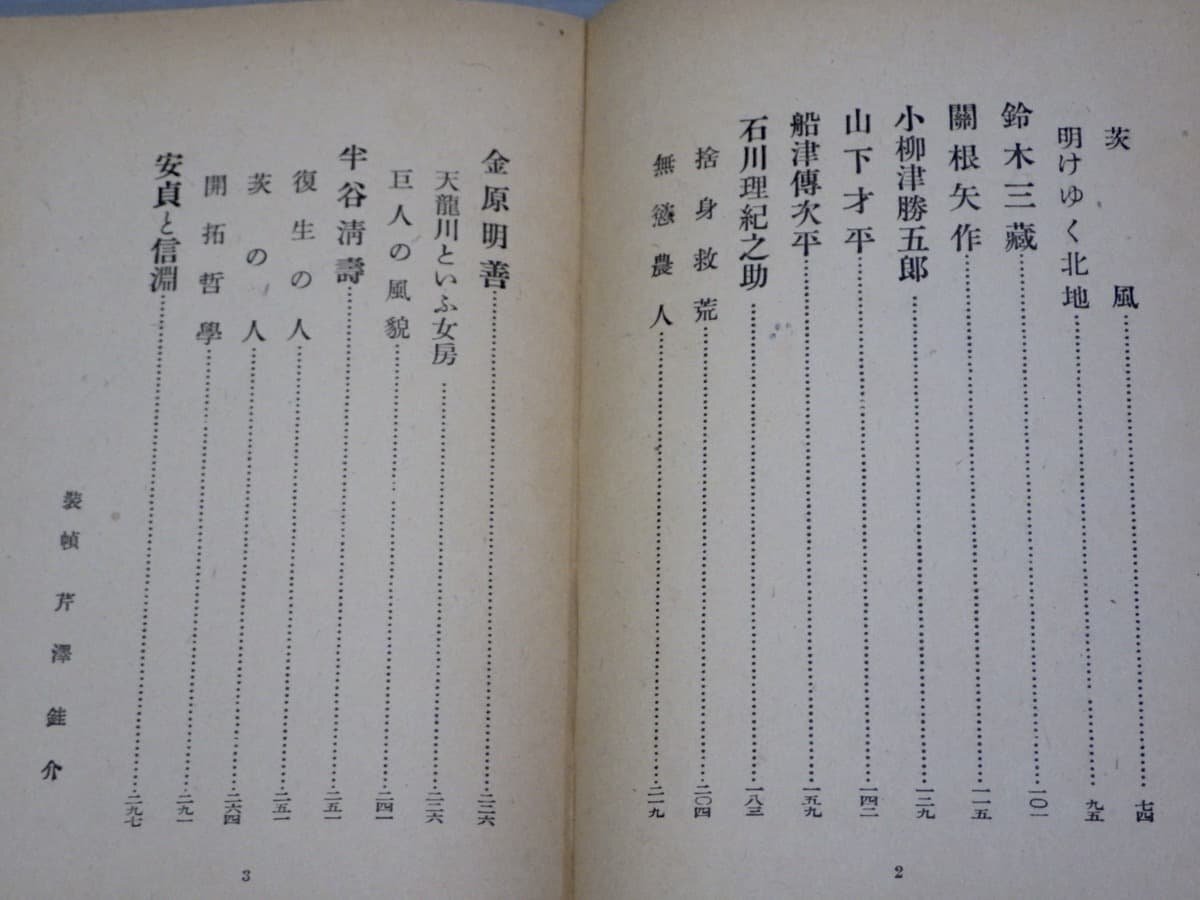 茨風……七四
明けゆく北地……九五
鈴木三藏……一〇一
關根矢作……一一五
小柳津勝五郎……一二九
山下才平……一四二
船津傳次平……一五九
石川理紀之助……一八三
捨身救荒……二〇四
無慾農人……二一九
2
金原明善……二二六
天龍川といふ女房……二二六
巨人の風貌……二四一
半谷淸壽……二五一
復生の人……二五一
茨の人……二六四
開拓哲學……二九一
安貞と信淵……二九七
装幀 芹澤銈介
3